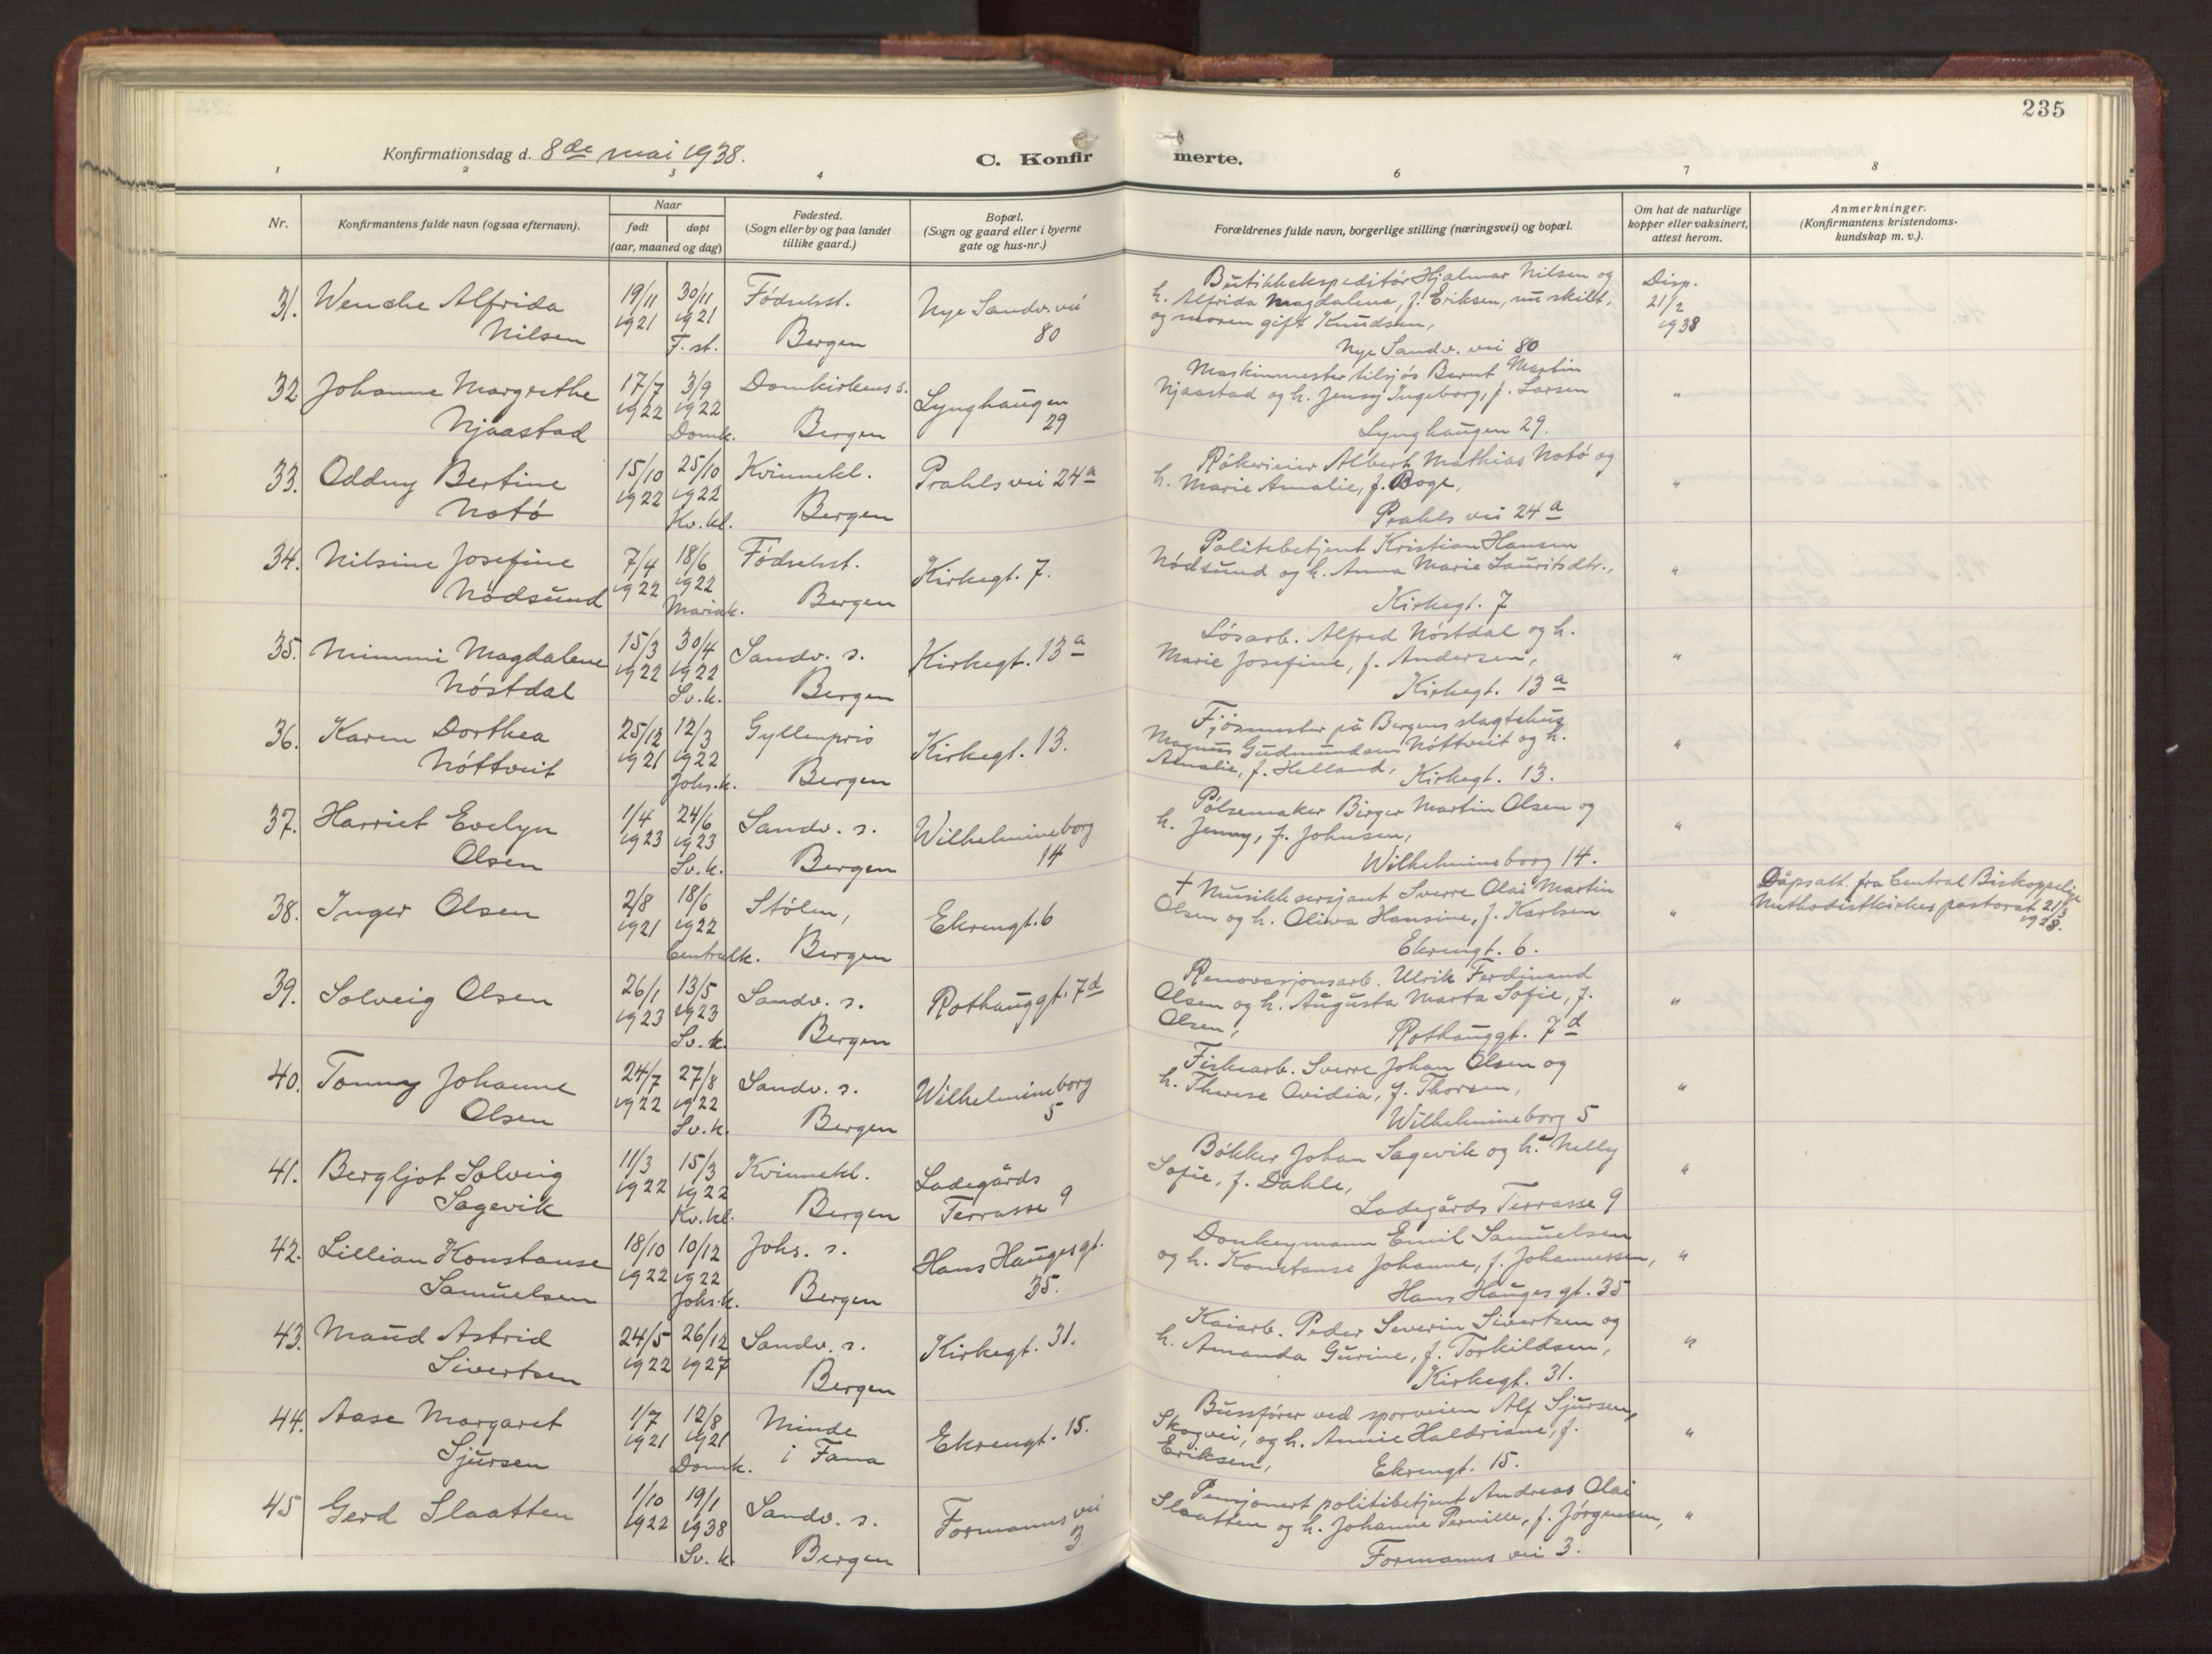 235
Konfirmationsdag d. 8de mai 1938.
C. Konfirmerte.
1 2 3 4 6 7 8
Nr.
Konfirmantens fulde navn (ogsaa efternavn).
Naar
født døpt
(aar, maaned og dag)
Fødested.
(Sogn eller by og paa landet
tillike gaard.)
Bopæl.
(Sogn og gaard eller i byerne
gate og hus-nr.)
Forældrenes fulde navn, borgerlige stilling (næringsvei) og bopæl.
Om hat de naturlige
kopper eller vaksinert,
attest herom.
Anmerkninger.
(Konfirmantens kristendoms-
kundskap m. v.).
31. Wenche Alfrida
Nilsen
19/11
1921
30/11
1921
F. st.
Fødselsst.
Bergen
Nye Sandv. vei
80
Butikkekspeditør Hjalmar Nilsen og
h. Alfrida Magdalena, f. Eriksen, nu skilt,
og moren gift Knudsen,
Nye Sandv. vei 80
Disp.
21/2
1938
32 Johanne Margrethe
Njaastad
17/7
1922
3/9
1922
Domk.
Domkirkens s.
Bergen
Lynghaugen
29
Maskinmester tilsjøs Bernt Martin
Njaastad og h. Jensy Ingeborg, f. Larsen
Lynghaugen 29.
"
33. Oddny Bertine
Notø
15/10
1922
25/10
1922
Kv. kl.
Kvinnekl.
Bergen
Prahls vei 24a
Røkerieier Albert Mathias Notø og
h. Marie Amalie, f. Boge,
Prahls vei 24a
"
34. Nilsine Josefine
Nødsund
7/4
1922
18/6
1922
Mariak.
Fødselsst.
Bergen
Kirkegt. 7.
Politibetjent Kristian Hansen
Nødsund og h. Anna Marie Lauritsdtr.,
Kirkegt. 7
"
35. Mimmi Magdalene
Nøstdal
15/3
1922
30/4
1922
Sv. k.
Sandv. s.
Bergen
Kirkegt. 13a
Løsarb. Alfred Nøstdal og h.
Marie Josefine, f. Andersen,
Kirkegt. 13a
"
36. Karen Dorthea
Nøttveit
25/12
1921
12/3
1922
Johs. k.
Gyllenpris
Bergen
Kirkegt. 13.
Fjøsmester på Bergens slagtehus
Magnus Gudmundsen Nøttveit og h.
Amalie, f. Helland,
Kirkegt. 13.
"
37. Harriet Evelyn
Olsen
1/4
1923
24/6
1923
Sv. k.
Sandv. s.
Bergen
Wilhelmineborg
14
Pølsemaker Birger Martin Olsen og
h. Jenny, f. Johnsen,
Wilhelmineborg 14.
"
38. Inger Olsen
2/8
1921
18/6
1922
Centralk.
Stølen,
Bergen
Ekrengt. 6
† Musikksersjant Sverre Olai Martin
Olsen og h. Oliva Hansine, f. Karlsen
Ekrengt. 6.
"
Dåpsatt. fra Central Biskoppelige
Methodistkirkes pastorat 21/3
1938.
39. Solveig Olsen
26/1
1923
13/5
1923
Sv. k.
Sandv. s.
Bergen
Rothauggt. 7d
Renovasjonsarb. Ulrik Ferdinand
Olsen og h. Augusta Marta Sofie, f.
Olsen,
Rothauggt. 7d
"
40. Tonny Johanne
Olsen
24/7
1922
27/8
1922
Sv. k.
Sandv. s.
Bergen
Wilhelmineborg
5
Fiskearb. Sverre Johan Olsen og
h. Therese Ovidia, f. Thorsen,
Wilhelmineborg 5
"
41. Bergljot Solveig
Sagevik
11/3
1922
15/3
1922
Kv. kl.
Kvinnekl.
Bergen
Ladegårds
Terrasse 9
Bøkker Johan Sagevik og h. Nelly
Sofie, f. Dahle,
Ladegårds Terrasse 9
"
42. Lillian Konstanse
Samuelsen
18/10
1922
10/12
1922
Johs. k.
Johs. s.
Bergen
Hans Hauges gt.
35.
Donkeymann Emil Samuelsen
og h. Konstanse Johanne, f. Johannessen,
Hans Hauges gt. 35
"
43. Maud Astrid
Sivertsen
24/5
1922
26/12
1927
Sandv. s.
Bergen
Kirkegt. 31.
Kaiarb. Peder Severin Sivertsen og
h. Amanda Gurine, f. Torkildsen,
Kirkegt. 31.
"
44. Aase Margaret
Sjursen
1/7
1921
12/8
1921
Domk.
Minde
i Fana
Ekrengt. 15.
Bussfører ved sporveien Alf Sjursen,
Skogvei, og h. Annie Haldriane, f.
Eriksen,
Ekrengt. 15.
"
45 Gerd Slaatten
1/10
1922
19/1
1938
Sv. k.
Sandv. s.
Bergen
Formanns vei
3.
Pensjonert politibetjent Andreas Olai
Slaatten og h. Johanne Pernille, f. Jørgensen,
Formanns vei 3.
"